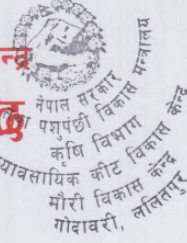 न्द्र
नेपाल सरकार
पशुपंछी विकास मन्त्रालय
कृषि विभाग
व्यावसायिक कीट विकास केन्द्र
मौरी विकास केन्द्र
गोदावरी, ललितपुर